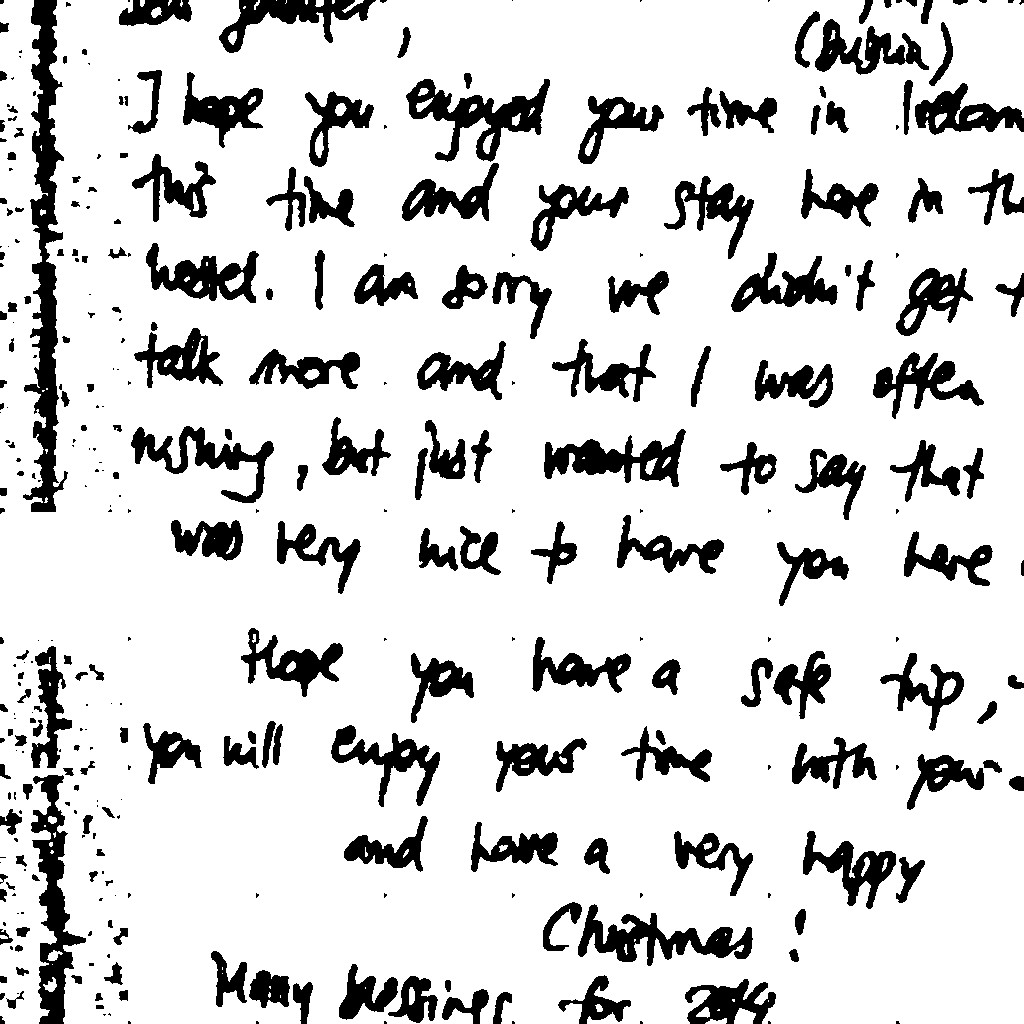 Dear Jennifer,
(Dublin)
I hope you enjoyed your time in
this time and your stay here in
hostel. I am sorry we didn't get
talk more and that I was often
rushing, but just wanted to say that
was very nice to have you here
Hope you have a safe trip,
you will enjoy your time with your
and have a very happy
Christmas!
Many blessings for